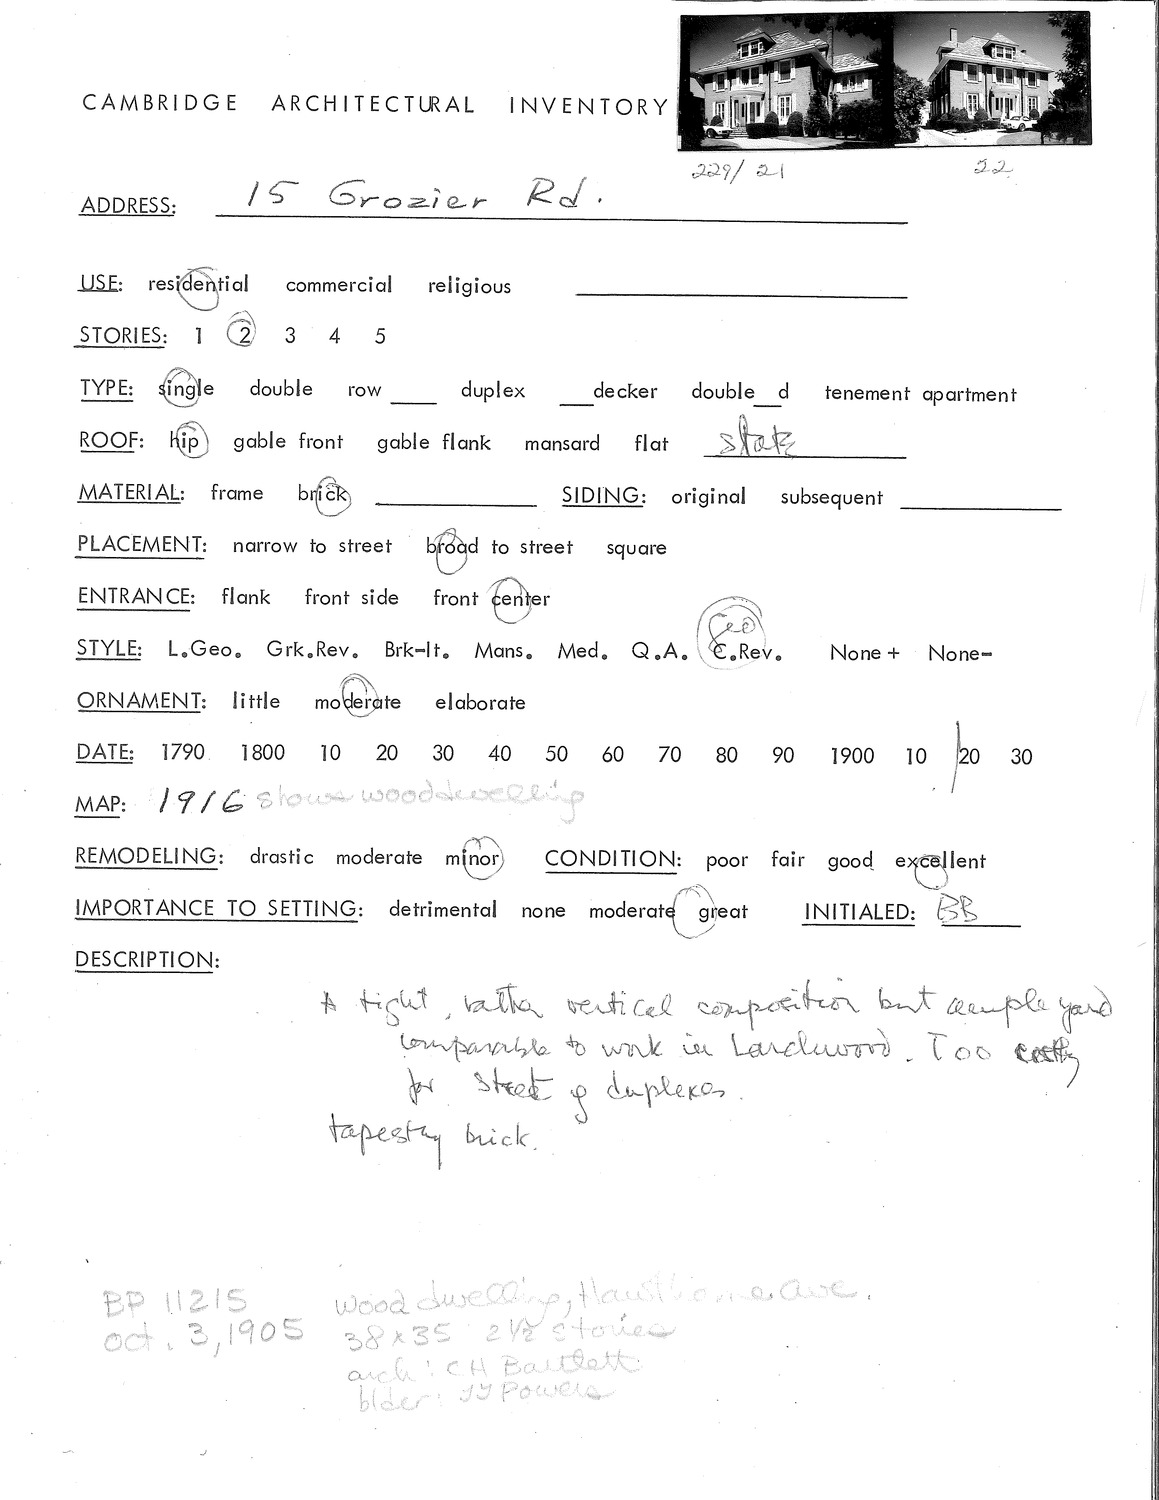 CAMBRIDGE ARCHITECTURAL INVENTORY
229/ 21 22
ADDRESS: 15 Grozier Rd.
USE: residential commercial religious
STORIES: 1 2 3 4 5
TYPE: single double row ____ duplex ___decker double__d tenement apartment
ROOF: hip gable front gable flank mansard flat slate
MATERIAL: frame brick SIDING: original subsequent
PLACEMENT: narrow to street broad to street square
ENTRANCE: flank front side front center
Geo
STYLE: L.Geo. Grk.Rev. Brk-It. Mans. Med. Q.A. C.Rev. None+ None-
ORNAMENT: little moderate elaborate
DATE: 1790 1800 10 20 30 40 50 60 70 80 90 1900 10 20 30
MAP: 1916 shows wood dwelling
REMODELING: drastic moderate minor CONDITION: poor fair good excellent
IMPORTANCE TO SETTING: detrimental none moderate great INITIALED: BB
DESCRIPTION:
A tight, rather vertical composition but ample yard
comparable to work in Larchwood. Too costly
for street of duplexes.
tapestry brick.
BP 11215 wood dwelling, Hawthorne Ave.
Oct. 3, 1905 38x35 2½ stories
arch: CH Bartlett
blder: JJ Powers